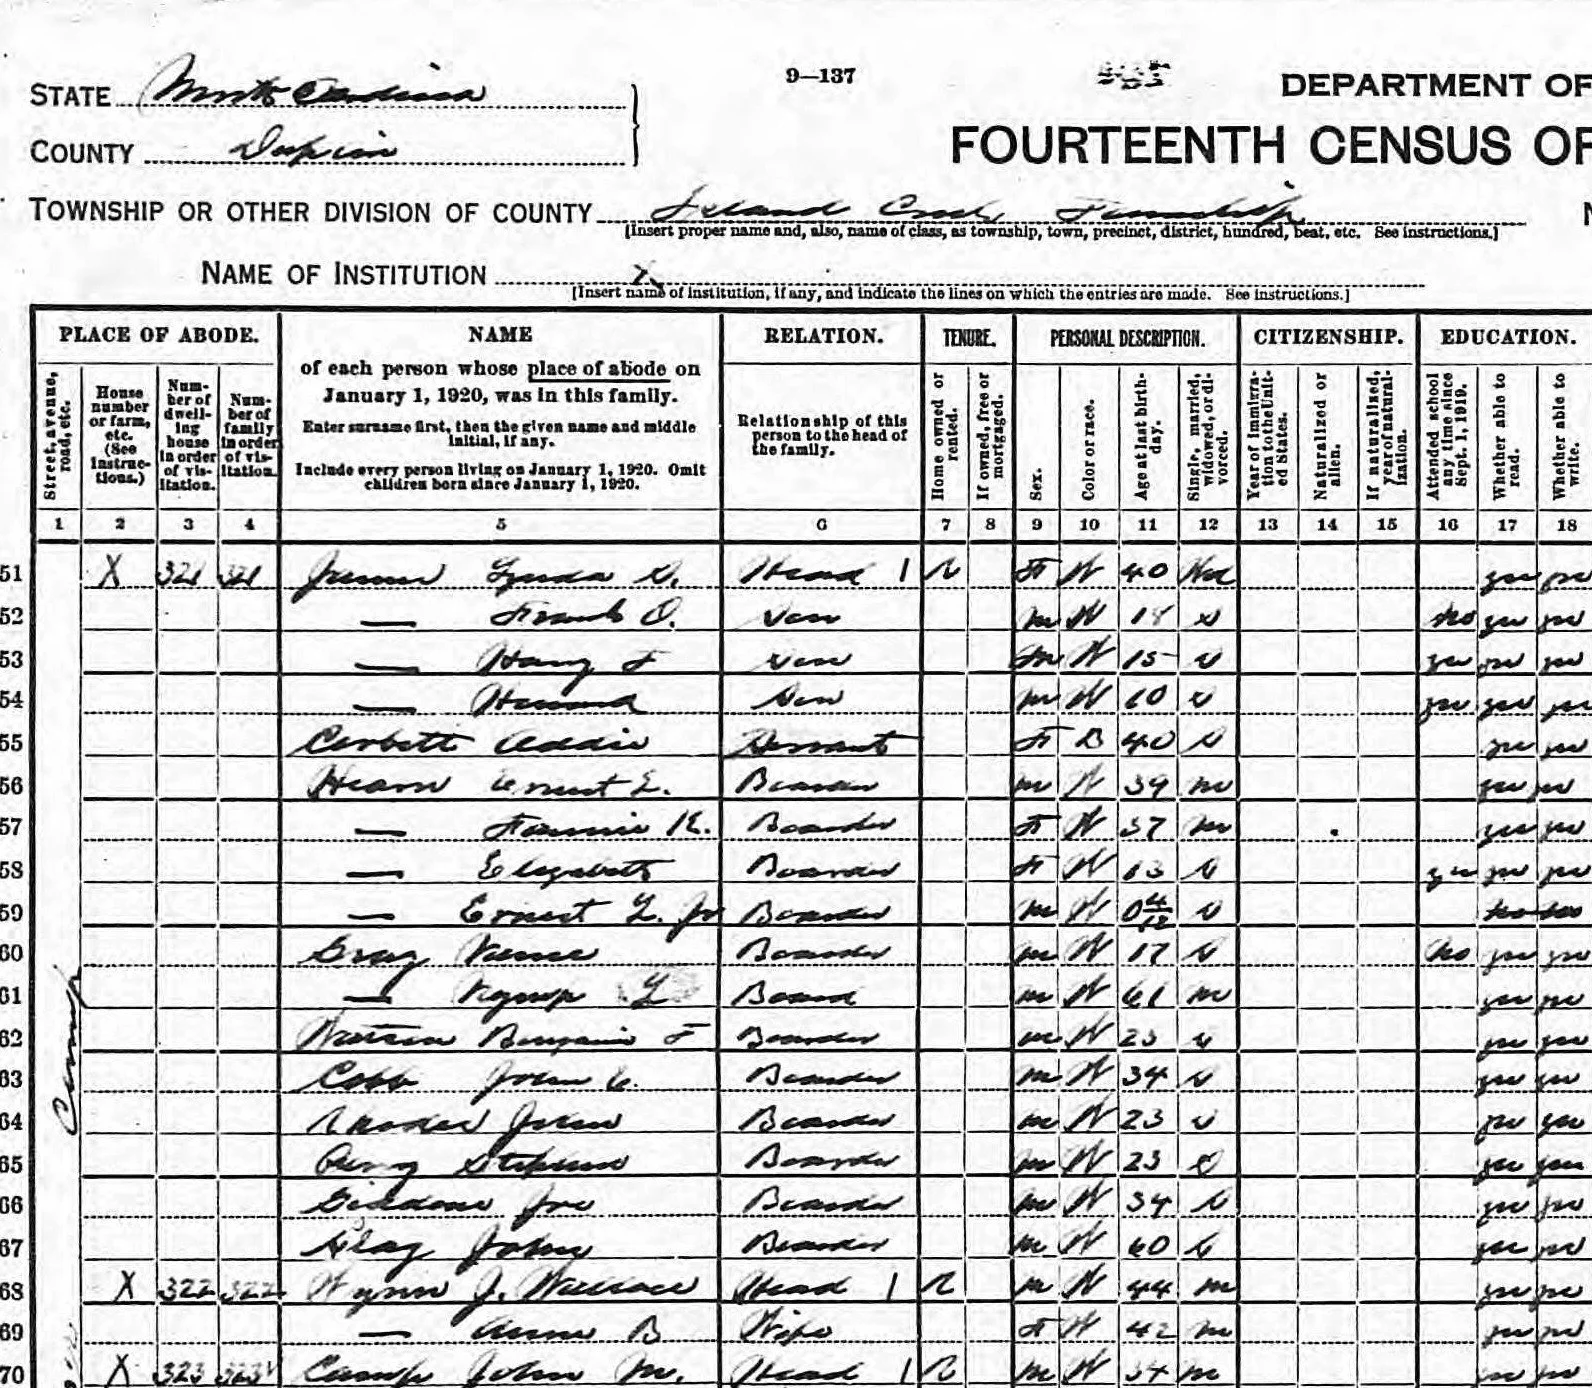 9—137
DEPARTMENT OF
STATE North Carolina
COUNTY Duplin
FOURTEENTH CENSUS OF
TOWNSHIP OR OTHER DIVISION OF COUNTY Island Creek Township
[Insert proper name and, also, name of class, as township, town, precinct, district, hundred, beat, etc. See instructions.]
NAME OF INSTITUTION X
[Insert name of institution, if any, and indicate the lines on which the entries are made. See instructions.]
PLACE OF ABODE.
Street, avenue, road, etc.
House number or farm, etc. (See instructions.)
Number of dwelling house in order of visitation.
Number of family in order of visitation.
NAME
of each person whose place of abode on
January 1, 1920, was in this family.
Enter surname first, then the given name and middle
initial, if any.
Include every person living on January 1, 1920. Omit
children born since January 1, 1920.
RELATION.
Relationship of this
person to the head of
the family.
TENURE.
Home owned or rented.
If owned, free or mortgaged.
PERSONAL DESCRIPTION.
Sex.
Color or race.
Age at last birthday.
Single, married, widowed, or divorced.
CITIZENSHIP.
Year of immigration to the United States.
Naturalized or alien.
If naturalized, year of naturalization.
EDUCATION.
Attended school any time since Sept. 1, 1919.
Whether able to read.
Whether able to write.
1 2 3 4 5 6 7 8 9 10 11 12 13 14 15 16 17 18
51 X 321 321 Head 1 R F W 40 Wd yes yes
52 — Frank O. Son M W 18 S no yes yes
53 — Harry F Son M W 15 S yes yes yes
54 — Son M W 10 S yes yes yes
55 Corbett Addie Servant F B 40 S yes yes
56 Hearn Ernest L. Boarder M W 39 M yes yes
57 — Fannie K. Boarder F W 37 M yes yes
58 — Elizabeth Boarder F W 13 S yes yes yes
59 — Ernest L. Jr Boarder M W 0 4/12 S
60 Gray Boarder M W 17 S no yes yes
61 — Board M W 61 M yes yes
62 Watson Benjamin F Boarder M W 23 S yes yes
63 Cobb John C. Boarder M W 34 S yes yes
64 Rhodes John Boarder M W 23 S yes yes
65 Boarder M W 23 S yes yes
66 Giddens Joe Boarder M W 34 S yes yes
67 John Boarder M W 60 S yes yes
68 X 322 322 Wynn J. Wallace Head 1 R M W 44 M yes yes
69 — Annie B Wife F W 42 M yes yes
70 X 323 323 Camp John M. Head 1 R M W 34 M yes yes
Camp